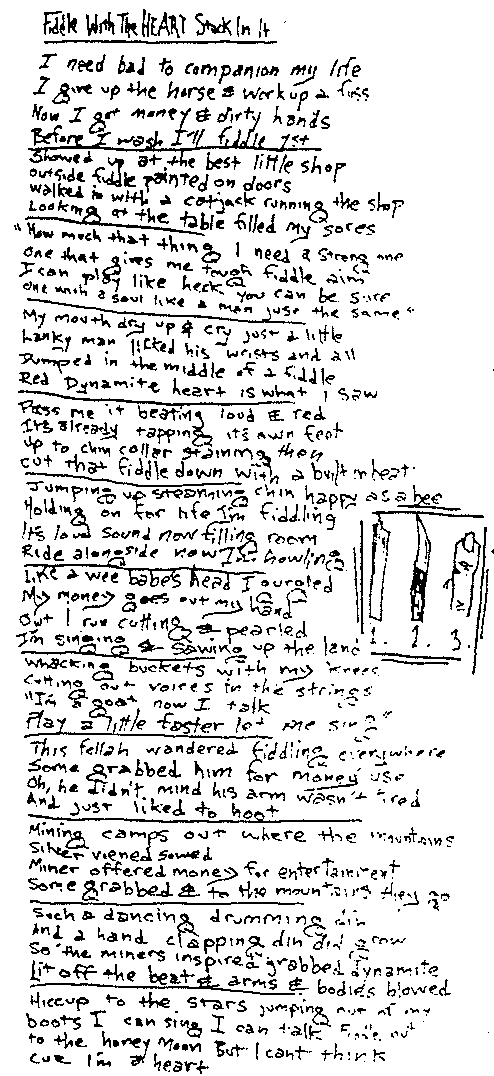 Fiddle With The HEART Stuck In It
I need bad to companion my life
I give up the horse & work up a fuss
Now I got money & dirty hands
Before I wash I'll fiddle 1st
Showed up at the best little shop
outside fiddle painted on doors
walked in with a catjack running the shop
Looking at the table filled my sores
"How much that thing I need a strong one
one that gives me tough fiddle aim
I can play like heck you can be sure
one with a soul like a man just the same"
My mouth dry up & cry just a little
Lanky man licked his wrists and all
Dumped in the middle of a fiddle
Red Dynamite heart is what I saw
Pass me it beating loud & red
Its already tapping its own feet
up to chin collar staining then
Cut that fiddle down with a built in beat
Jumping up steaming chin happy as a bee
Holding on for life I'm fiddling
It's loud sound now filling room
Ride alongside now I'm howling
Like a wee babes head I
My money goes out my hand
Out I run cutting & pearled
I'm singing & sawing up the land
1. 2. 3.
whacking buckets with my knees
Cutting out voices in the strings
"I'm a goat now I talk
Play a little faster let me sing"
This fellah wandered fiddling everywhere
Some grabbed him for money use
Oh, he didn't mind his arm wasn't tired
And just liked to hoot
Mining camps out where the mountains
Silver viened sowed
Miner offered money for entertainment
Some grabbed & to the mountains they go
Such a dancing drumming din
And a hand clapping din did grow
So the miners inspired grabbed dynamite
Lit off the beat & arms & bodies blowed
Hiccup to the stars jumping out of my
boots I can sing I can talk out
to the honey moon But I cant think
cuz I'm a heart